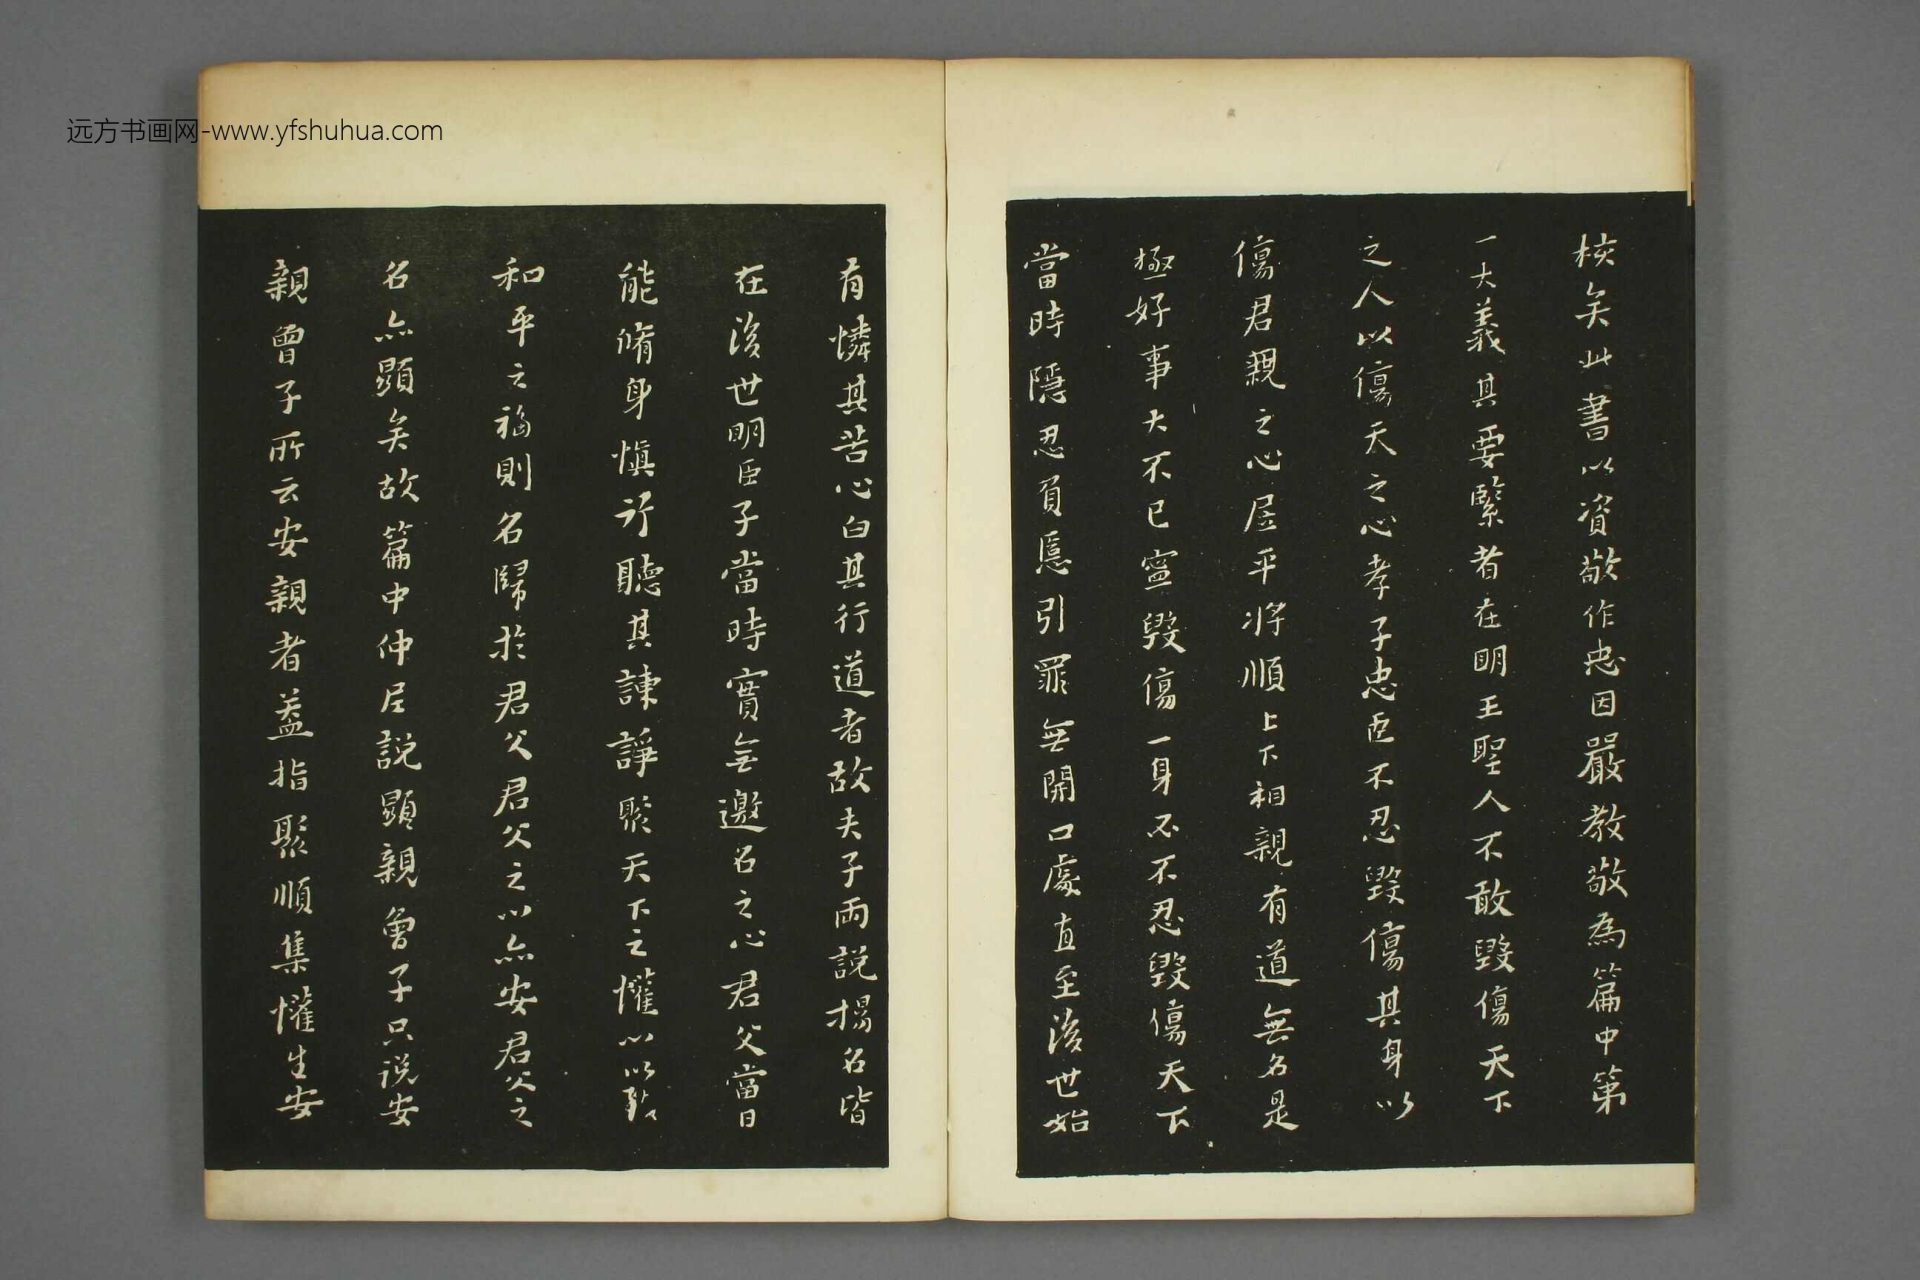 远方书画网-www.yfshuhua.com
核矣此書以資敬作忠因嚴教敬為篇中第
一大義其要緊者在明王聖人不敢毀傷天下
之人以傷天之心孝子忠臣不忍毀傷其身以
傷君親之心居平將順上下相親有道無名是
極好事大不已寧毀傷一身必不忍毀傷天下
當時隱忍負慝引罪無開口處直至後世始
有憐其苦心白其行道者故夫子兩說揚名皆
在後世明臣子當時實無邀名之心君父當日
能脩身慎行聽其諫諍聚天下之懽心以致
和平之福則名歸於君父君父之心亦安君父之
名亦顯矣故篇中仲尼說顯親曾子只說安
親曾子所云安親者蓋指聚順集懽生安